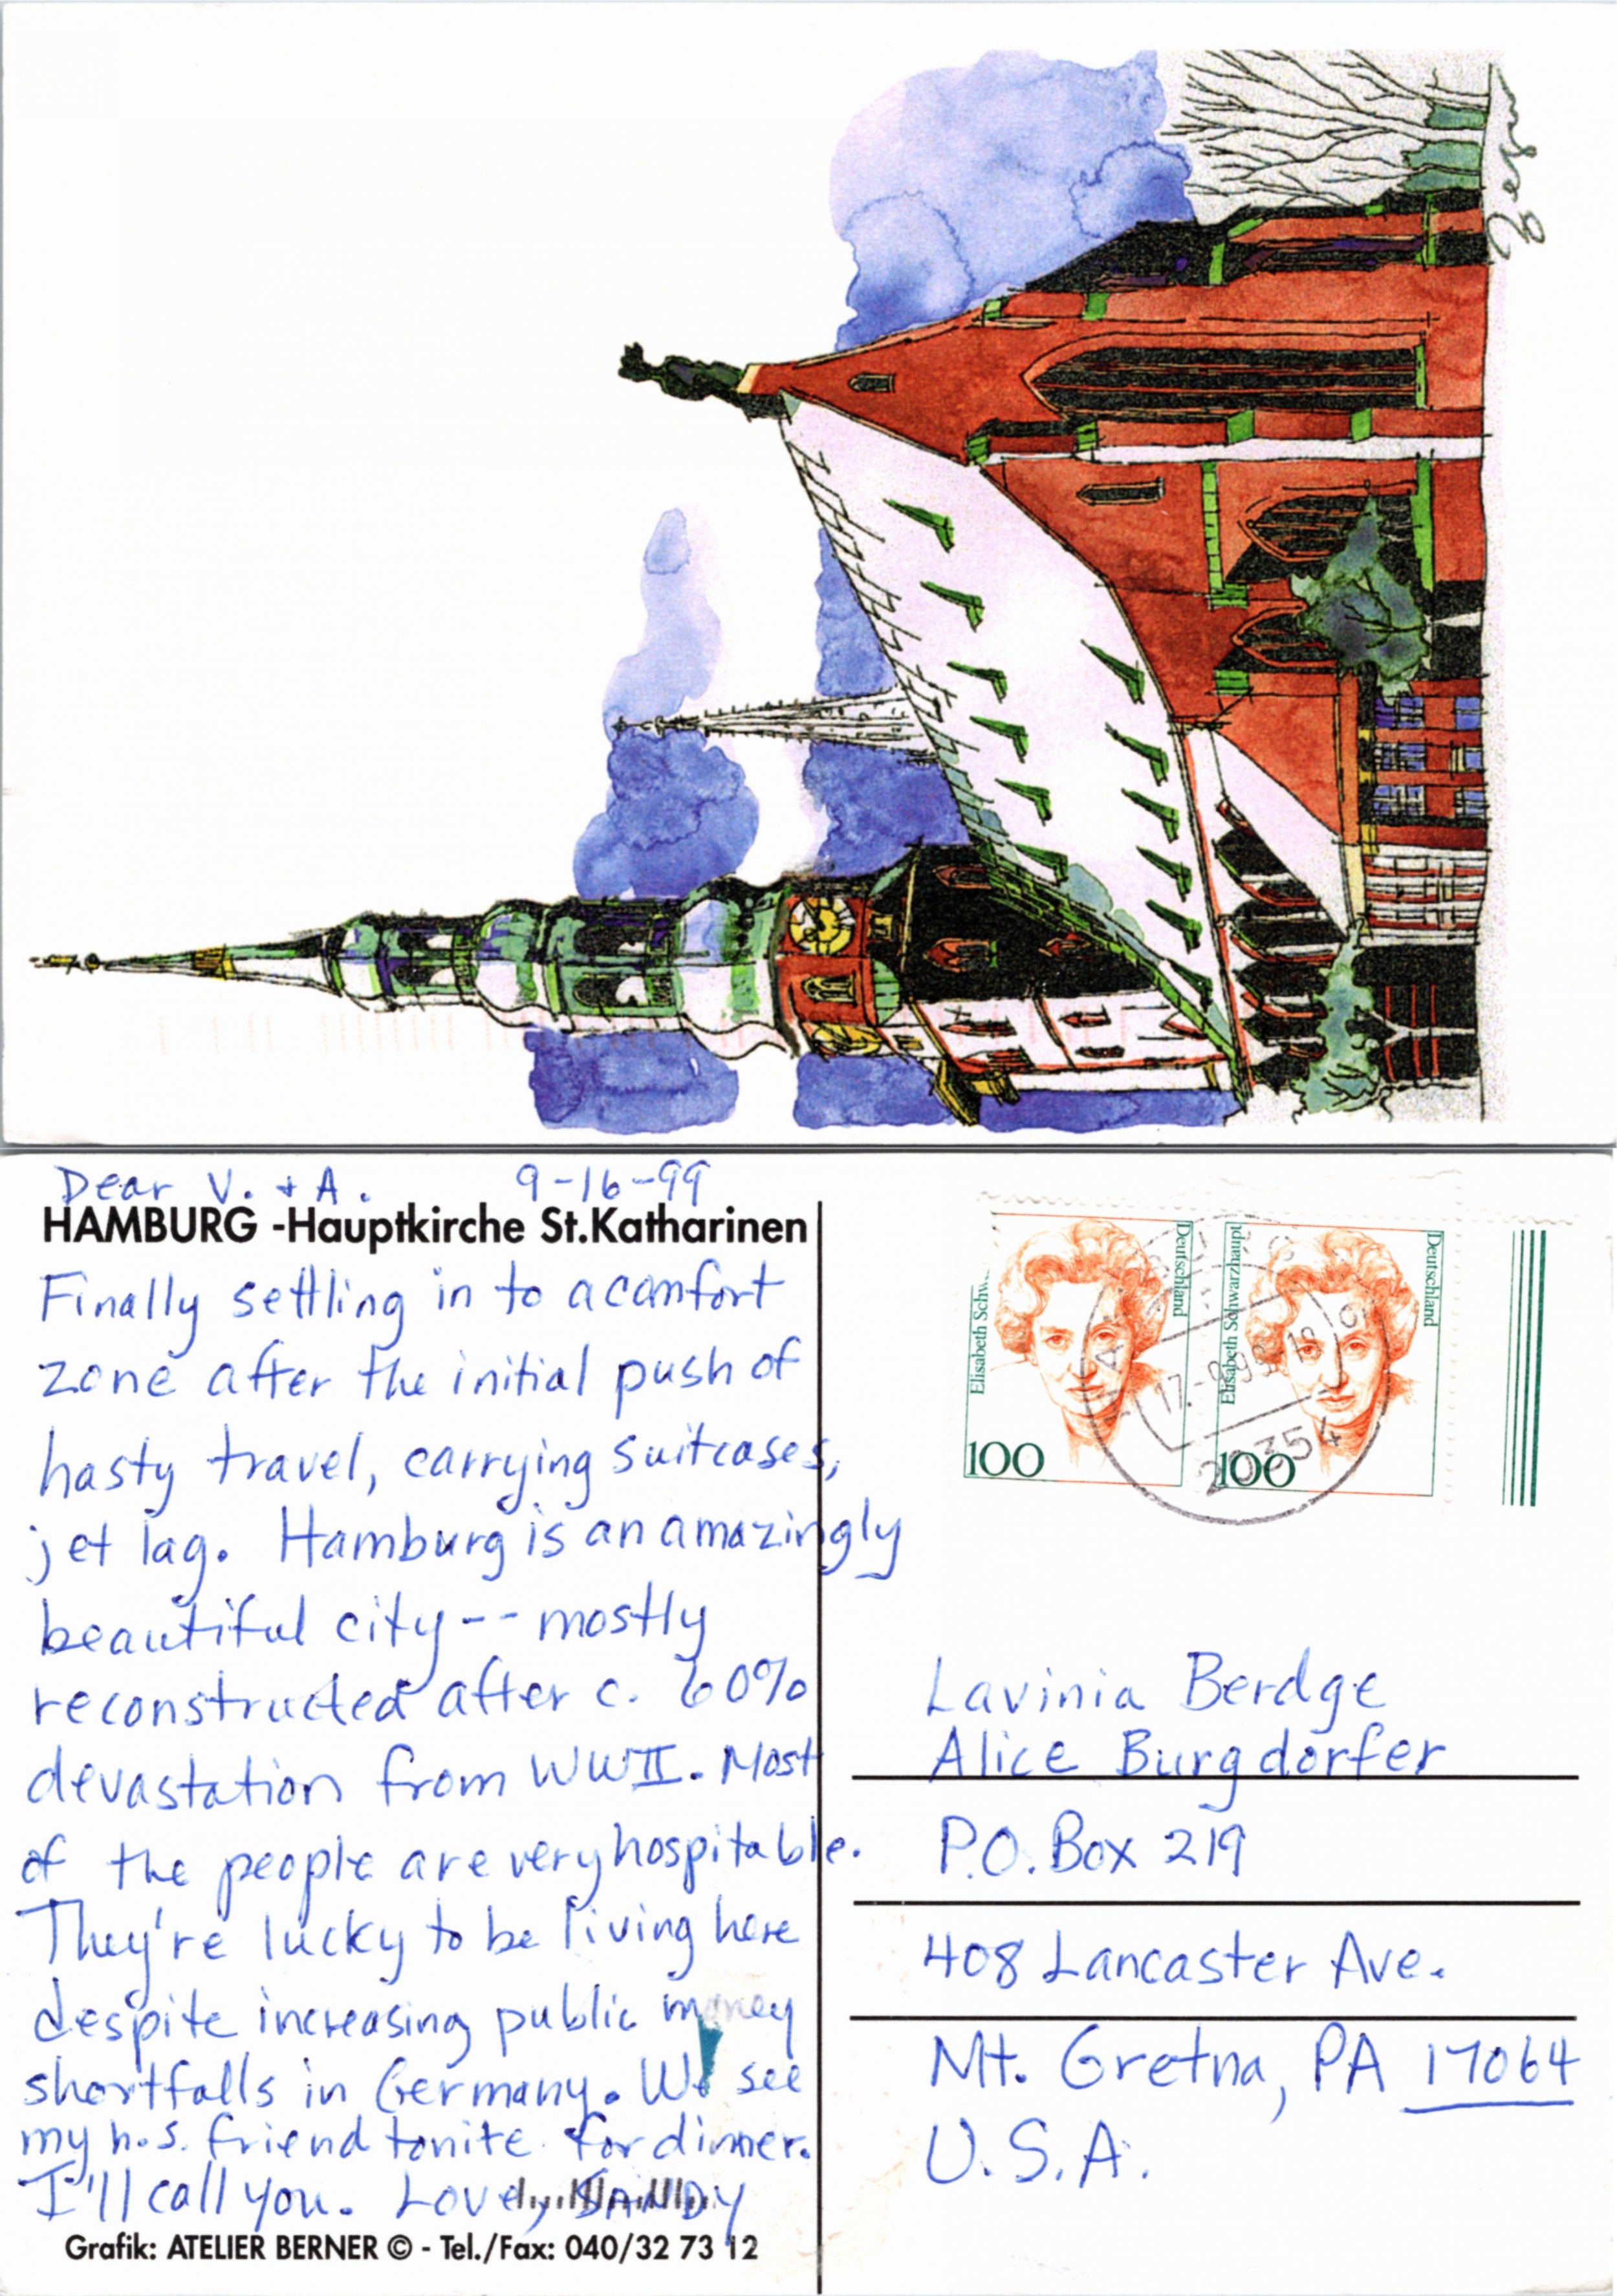 Dear V. + A. 9-16-99
HAMBURG -Hauptkirche St.Katharinen
Finally settling in to a comfort
zone after the initial push of
hasty travel, carrying suitcases,
jet lag. Hamburg is an amazingly
beautiful city -- mostly
reconstructed after c. 60%
devastation from WWII. Most
of the people are very hospitable.
They're lucky to be living here
despite increasing public money
shortfalls in Germany. We see
my h.s. friend tonite for dinner.
I'll call you. Love, SANDY
Grafik: ATELIER BERNER © - Tel./Fax: 040/32 73 12
Elisabeth Schw
Deutschland
100
Elisabeth Schwarzhaupt
Deutschland
100
17.-9.99-18
20354
Lavinia Berdge
Alice Burgdorfer
P.O. Box 219
408 Lancaster Ave.
Mt. Gretna, PA 17064
U.S.A.